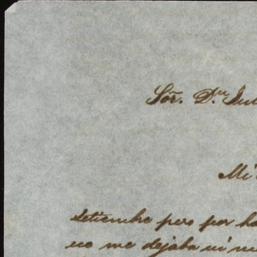 Sōr. Dⁿ
Mi
Setiembre pero por
no me dejaba ni